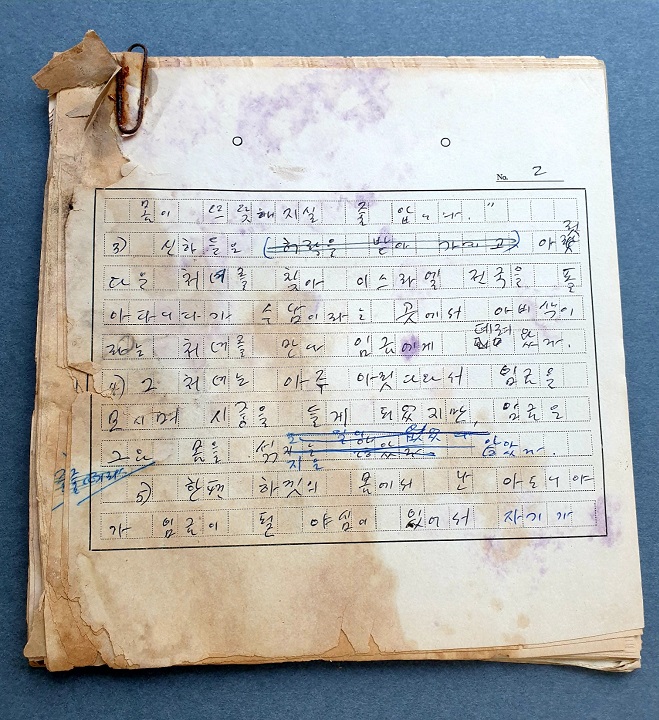 No. 2
몸이 따뜻해지실 줄 압니다."
3) 신하들은 (허락을 받아 가지고) 아릿
다운 처녀를 찾아 이스라엘 전국을 돌
아다니다가 수넴이라는 곳에서 아비삭이
라는 처녀를 만나 임금에게 데려 왔다.
4) 그 처녀는 아주 아릿다와서 임금을
모시며 시중을 들게 되었지만, 임금은
그와 몸을 섞 지는 않았다.
5) 한편 하낏의 몸에서 난 아도니야
가 임금이 될 야심이 있어서 자기가